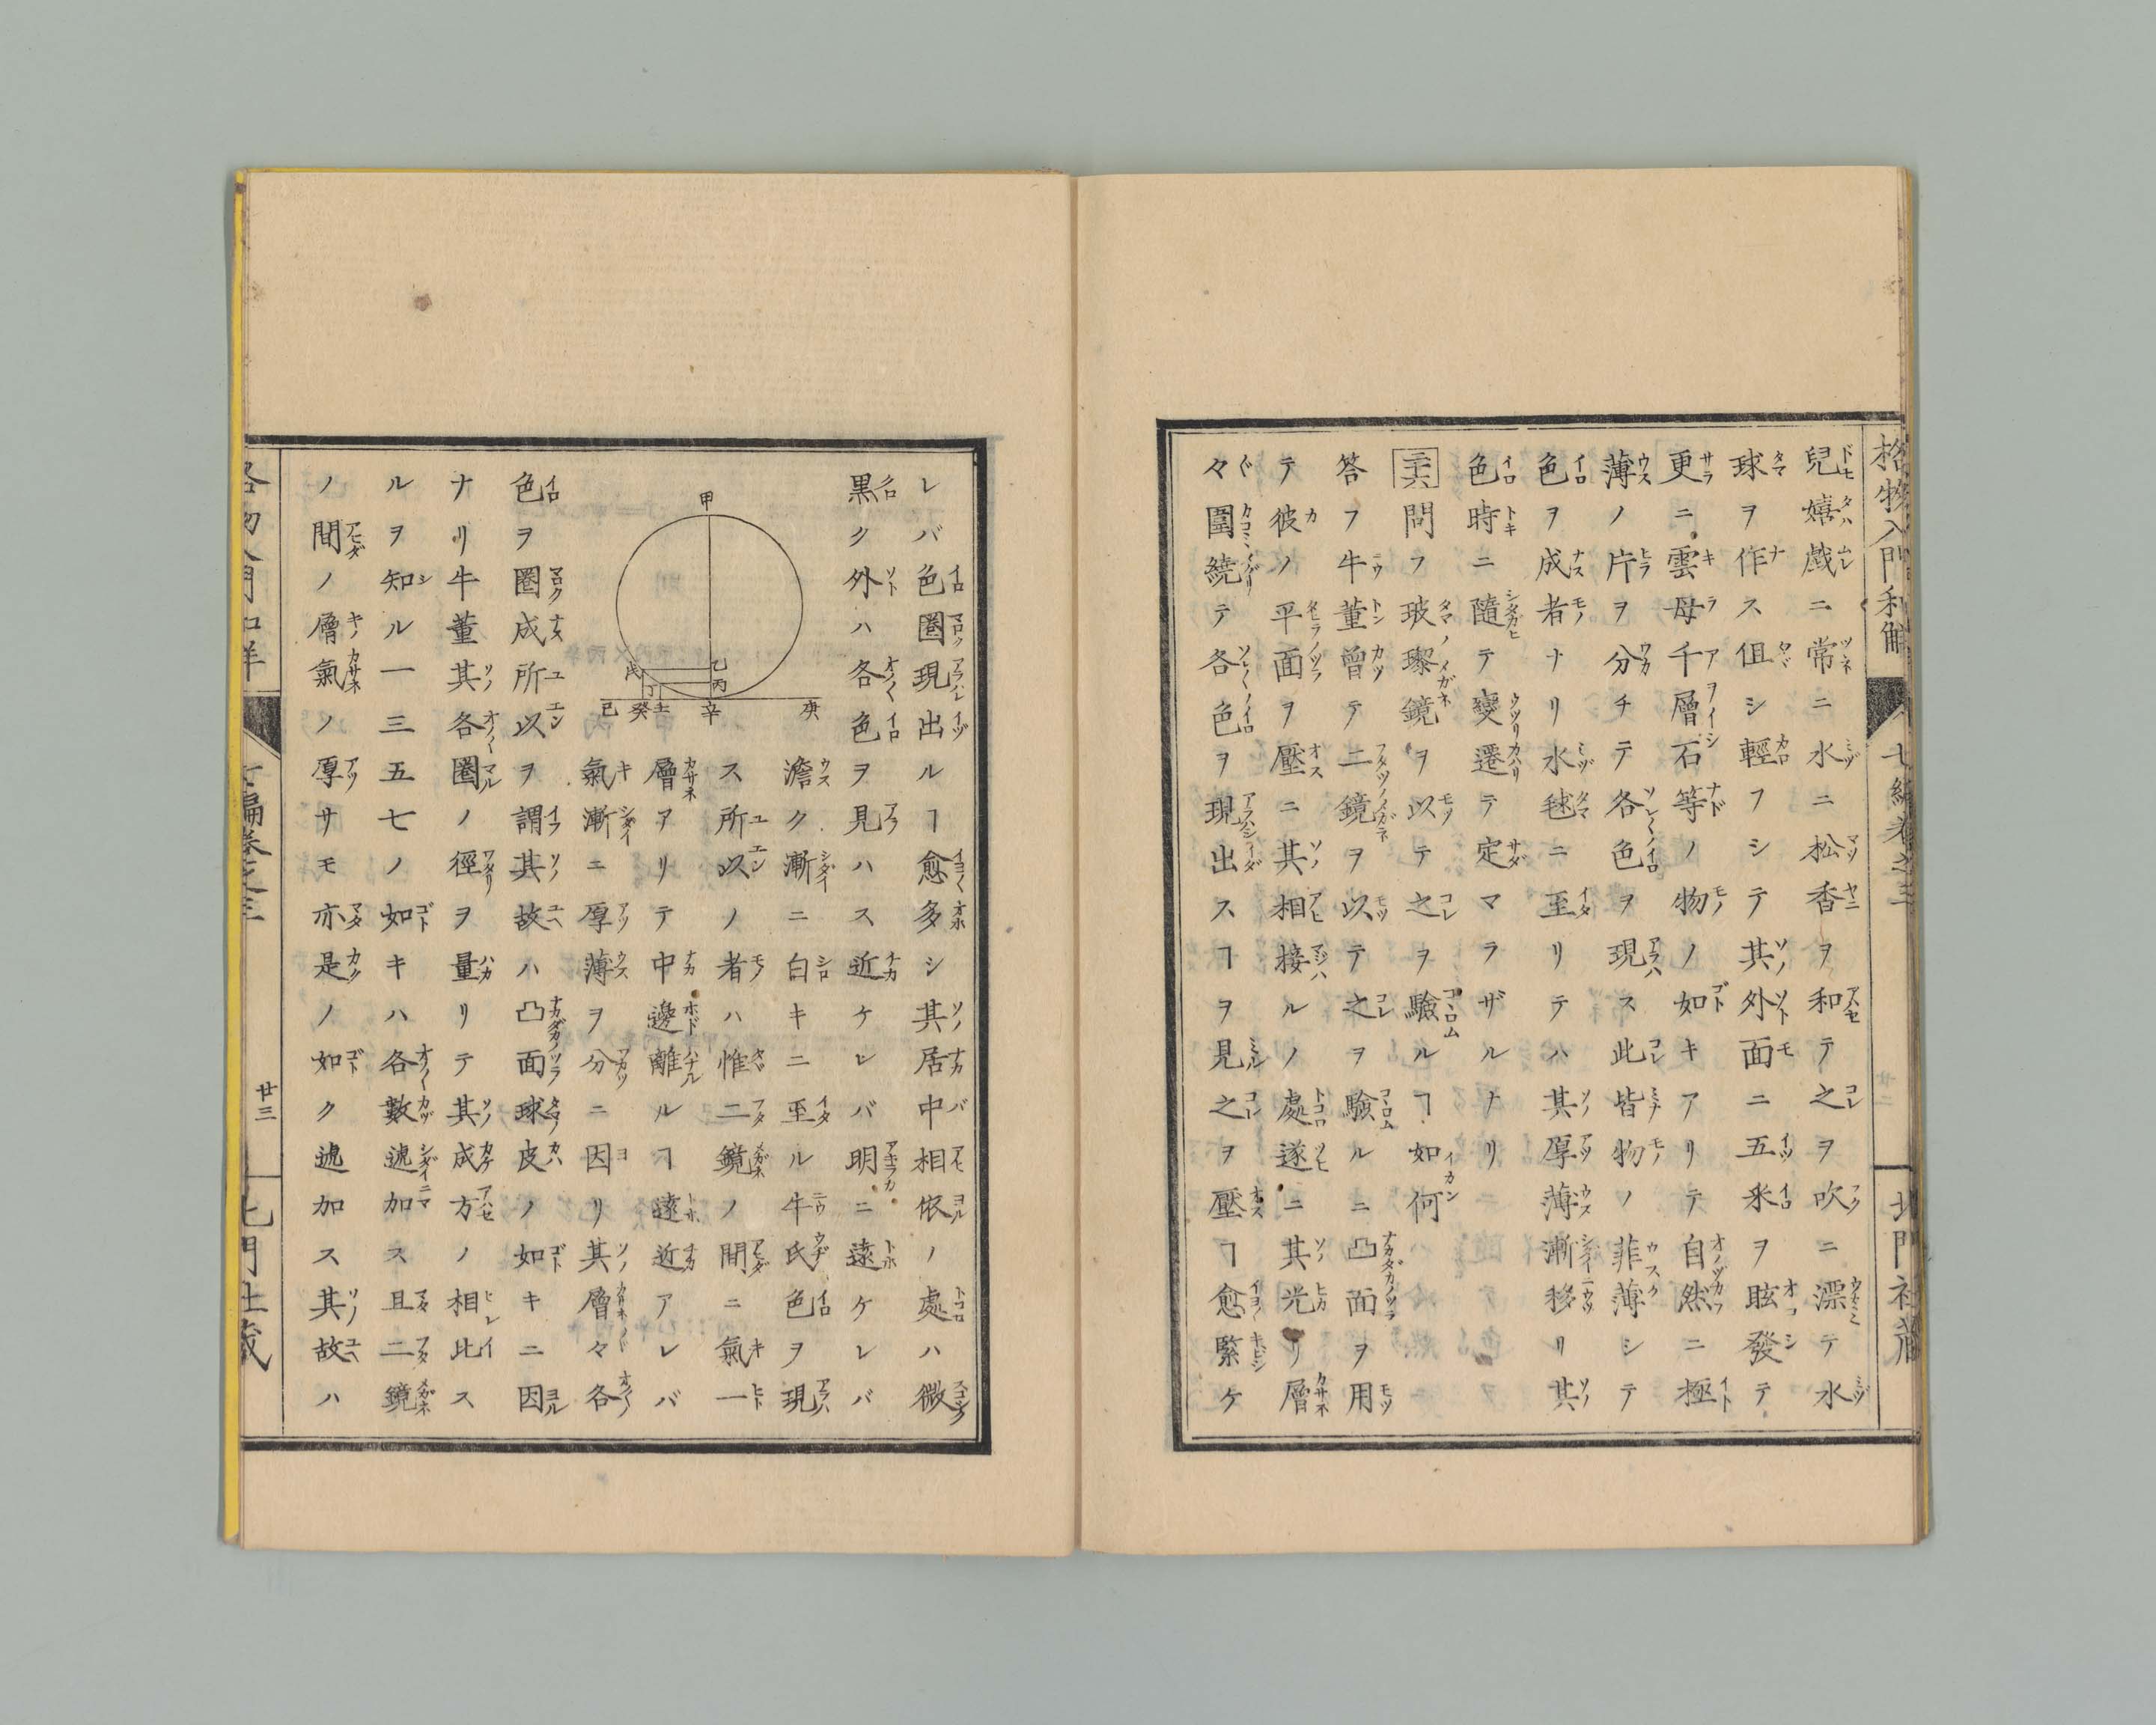 格物入門和解 七編卷之三 北門社藏
兒嬉戯ニ常ニ水ニ松香ヲ和テ之ヲ吹ニ漂テ水
球ヲ作ス但シ輕フシテ其外面ニ五釆ヲ眩發テ
更ニ雲母千層石等ノ物ノ如キアリテ自然ニ極
薄ノ片ヲ分チテ各色ヲ現ス此皆物ノ菲薄シテ
色ヲ成者ナリ水毬ニ至リテハ其厚薄漸移リ其
色時ニ隨テ變遷テ定マラザルナリ
三六 問フ玻瓈鏡ヲ以テ之ヲ驗ルヿ如何
答フ牛董曾テ二鏡ヲ以テ之ヲ驗ルニ凸面ヲ用
テ彼ノ平面ヲ壓ニ其相接ルノ處遂ニ其光リ層
々圍繞テ各色ヲ現出スヿヲ見之ヲ壓ヿ愈緊ケ
レバ色圏現出ルヿ愈多シ其居中相依ノ處ハ微
黒ク外ハ各色ヲ見ハス近ケレバ明ニ遠ケレバ
澹ク漸ニ白キニ至ル牛氏色ヲ現
ス所以ノ者ハ惟二鏡ノ間ニ氣一
層アリテ中邊離ルヿ遠近アレバ
氣漸ニ厚薄ヲ分ニ因リ其層々各
甲
乙
丙
丁
氏
庚
辛
壬
癸
己
色ヲ圏成所以ヲ謂其故ハ凸面球皮ノ如キニ因
ナリ牛董其各圏ノ徑ヲ量リテ其成方ノ相比ス
ルヲ知ル一三五七ノ如キハ各數遞加ス且二鏡
ノ間ノ層氣ノ厚サモ亦是ノ如ク遞加ス其故ハ
廿三